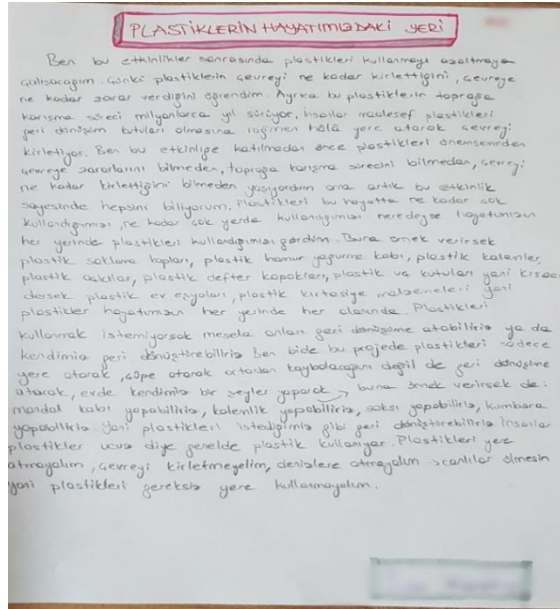 PLASTİKLERİN HAYATIMIZDAKİ YERİ
Ben bu etkinlikler sonrasında plastikleri kullanmayı azaltmaya
çalışacağım. Çünkü plastiklerin çevreyi ne kadar kirlettiğini, çevreye
ne kadar zarar verdiğini öğrendim. Ayrıca bu plastiklerin toprağa
karışma süreci milyonlarca yıl sürüyor, İnsanlar maalesef plastikleri
geri dönüşüm kutuları olmasına rağmen hâlâ yere atarak çevreyi
kirletiyor. Ben bu etkinliğe katılmadan önce plastikleri önemsemeden
çevreye zararlarını bilmeden, toprağa karışma sürecini bilmeden, çevreyi
ne kadar kirlettiğini bilmeden yaşıyordum ama artık bu etkinlik
sayesinde hepsini biliyorum. Plastikleri bu hayatta ne kadar çok
kullandığımızı, ne kadar çok yerde kullandığımızı neredeyse hayatımızın
her yerinde plastikleri kullandığımızı gördüm. Buna örnek verirsek
plastik saklama kapları, plastik hamur yoğurma kabı, plastik kalemler,
plastik askılar, plastik defter kapakları, plastik su kutuları yani kısaca
dersek plastik ev eşyaları, plastik kırtasiye malzemeleri yani
plastikler hayatımızın her yerinde her alanında. Plastikleri
kullanmak istemiyorsak mesela onları geri dönüşüme atabiliriz ya da
kendimiz geri dönüştürebiliriz Ben bide bu projede plastikleri sadece
yere atarak, çöpe atarak ortadan kaybolacağını değil de geri dönüşüme
atarak, evde kendimiz bir şeyler yaparak, buna örnek verirsek de:
mandal kabı yapabiliriz, kalemlik yapabiliriz, saksı yapabiliriz, kumbara
yapabiliriz. Yani plastikleri istediğimiz gibi geri dönüştürebiliriz İnsanlar
plastikler ucuz diye genelde plastik kullanıyor. Plastikleri yere
atmayalım, çevreyi kirletmeyelim, denizlere atmayalım canlılar ölmesin
yani plastikleri gereksiz yere kullanmayalım.